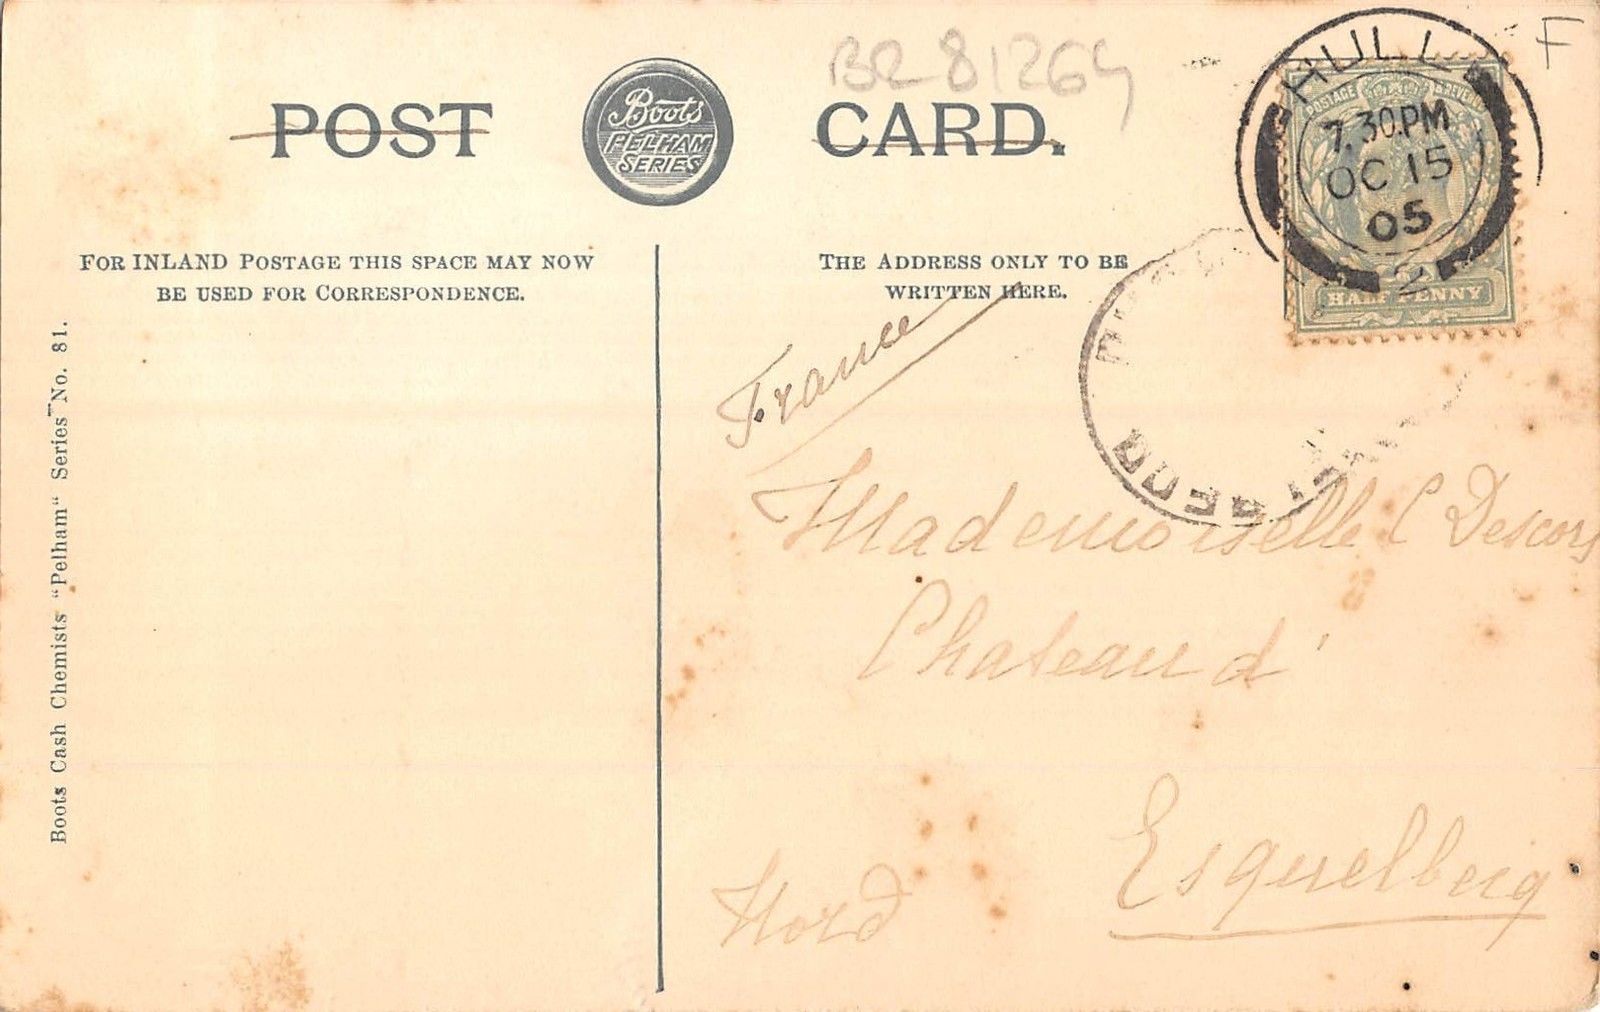 BR 81264
F
POST CARD.
Boots
PELHAM
SERIES
HULL
7.30.PM
OC 15
05
2
POSTAGE & REVENUE
HALF PENNY
FOR INLAND POSTAGE THIS SPACE MAY NOW
BE USED FOR CORRESPONDENCE.
THE ADDRESS ONLY TO BE
WRITTEN HERE.
Boots Cash Chemists "Pelham" Series No. 81.
France
Mademoiselle C Descors
Chateau d'
Esquelbecq
Nord